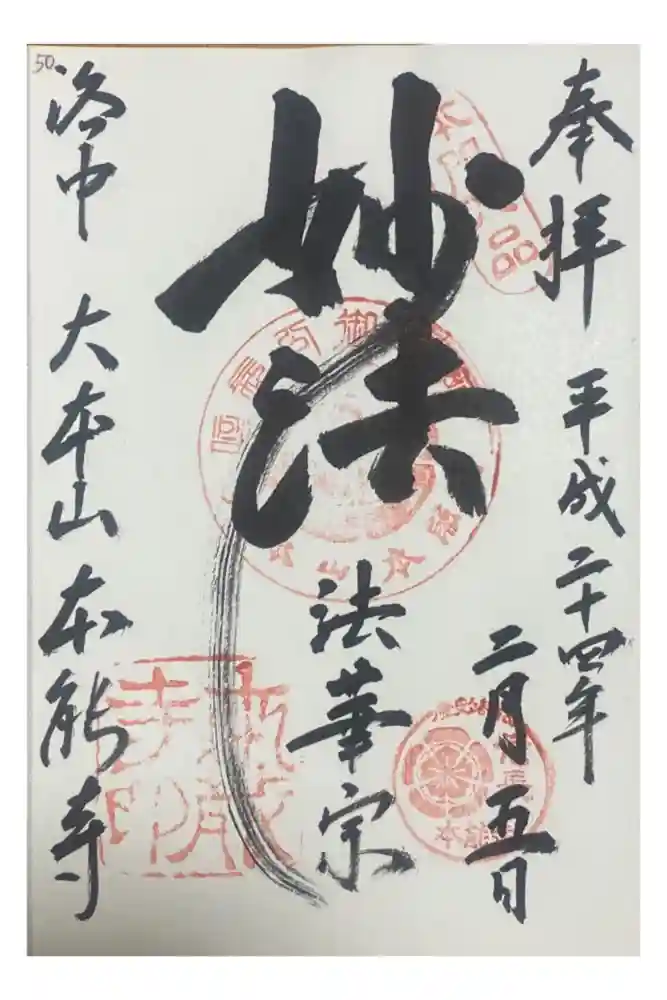 奉拝 平成二十四年
二月五日
妙法
法華宗
洛中 大本山 本能寺
50
本能寺印